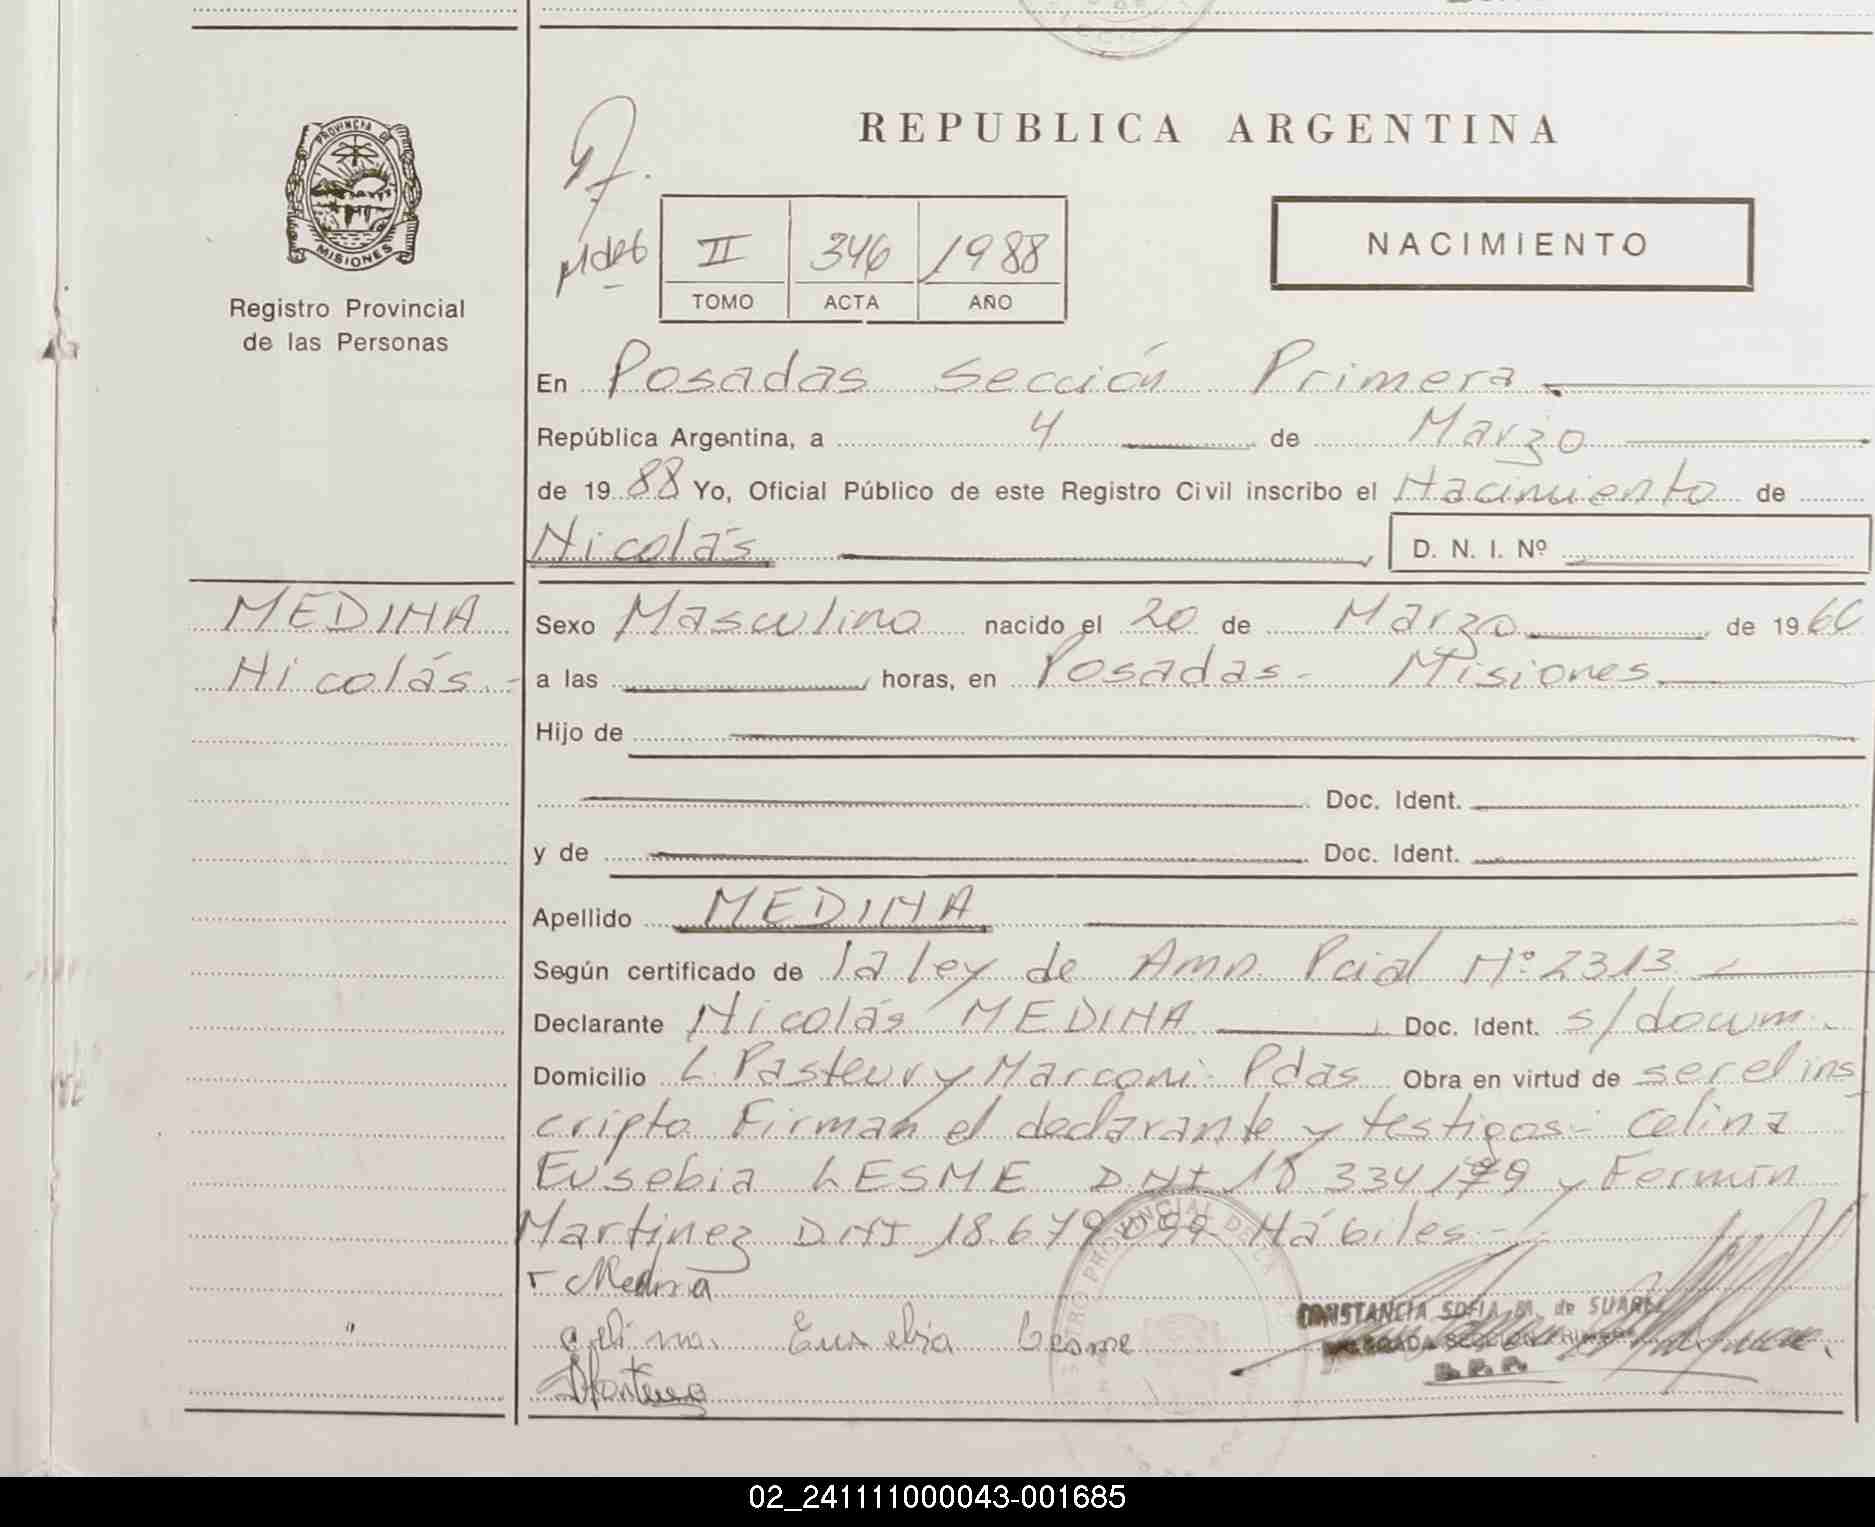 PROVINCIA DE
MISIONES
Registro Provincial
de las Personas
REPUBLICA ARGENTINA
NACIMIENTO
II 346 1988
TOMO ACTA AÑO
En Posadas Sección Primera
República Argentina, a 4 de Marzo
de 19 88 Yo, Oficial Público de este Registro Civil inscribo el Nacimiento de
Nicolás D. N. I. Nº
MEDINA
Nicolás.-
Sexo Masculino nacido el 20 de Marzo de 19 60
a las horas, en Posadas - Misiones
Hijo de
Doc. Ident.
y de Doc. Ident.
Apellido MEDINA
Según certificado de la ley de Amn. Pcial Nº 2313
Declarante Nicolás MEDINA Doc. Ident. s/docum.
Domicilio L. Pasteur y Marconi - Pdas Obra en virtud de ser el ins
cripto. Firman el declarante y testigos: Celina
Eusebia LESME D.N.I 334 y Fermín
Martinez D.N.I 18.679.099 Hábiles.-
Medina
Celina Eusebia Lesme
CONSTANCIA SOFIA M. de SUAREZ
DELEGADA SECCION PRIMERA
R. P. P.
02_241111000043-001685